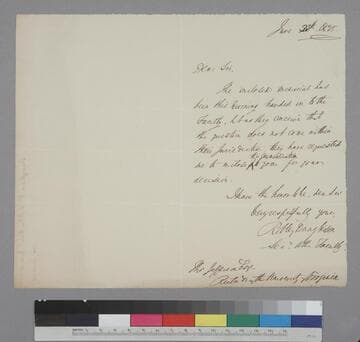 Dear Sir,
The enclosed memorial has
been this Evening handed in to the
Faculty, & but as they conceive that
the question does not come within
their Jurisdiction they have requested
me to enclose it to you for your
decision.
I have the honor to be, dear Sir
Very respectfully yours
Robley Dunglison
Faculty
Tho Jefferson Esqr
Rector of the University of Virginia